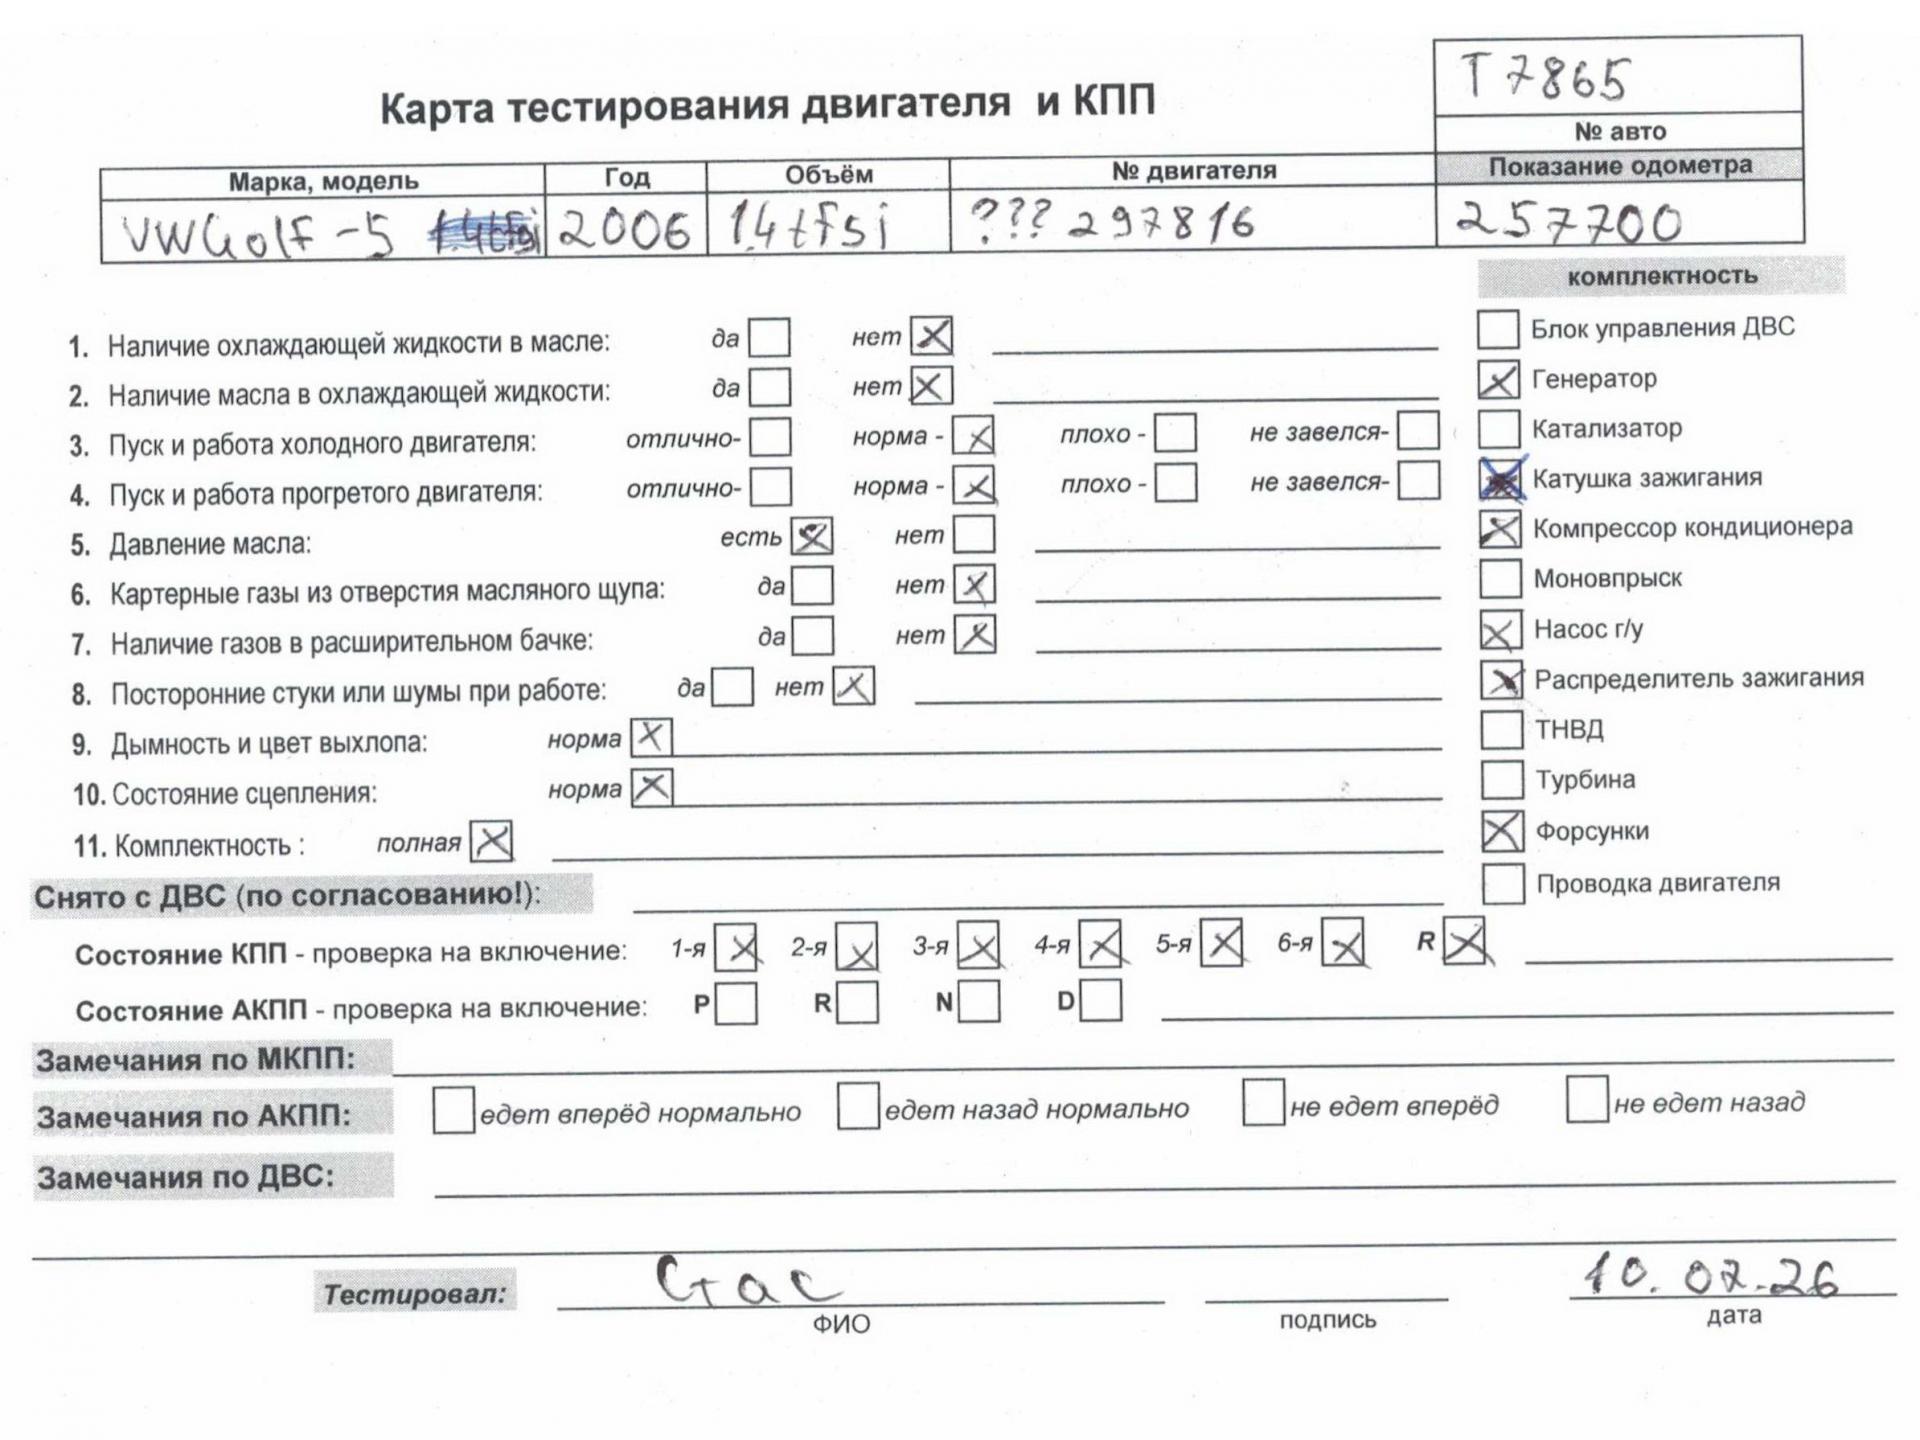 Т 7865
Карта тестирования двигателя и КПП
№ авто
Марка, модель Год Объём № двигателя Показание одометра
VW Golf -5 2006 1.4 tfsi ??? 297816 257700
комплектность
1. Наличие охлаждающей жидкости в масле: да нет
Блок управления ДВС
2. Наличие масла в охлаждающей жидкости: да нет
Генератор
3. Пуск и работа холодного двигателя: отлично- норма - плохо - не завелся-
Катализатор
4. Пуск и работа прогретого двигателя: отлично- норма - плохо - не завелся-
Катушка зажигания
5. Давление масла: есть нет
Компрессор кондиционера
6. Картерные газы из отверстия масляного щупа: да нет
Моновпрыск
7. Наличие газов в расширительном бачке: да нет
Насос г/у
8. Посторонние стуки или шумы при работе: да нет
Распределитель зажигания
9. Дымность и цвет выхлопа: норма
ТНВД
10. Состояние сцепления: норма
Турбина
11. Комплектность : полная
Форсунки
Снято с ДВС (по согласованию!):
Проводка двигателя
Состояние КПП - проверка на включение: 1-я 2-я 3-я 4-я 5-я 6-я R
Состояние АКПП - проверка на включение: P R N D
Замечания по МКПП:
Замечания по АКПП: едет вперёд нормально едет назад нормально не едет вперёд не едет назад
Замечания по ДВС:
Тестировал: Стас 10.02.26
ФИО подпись дата